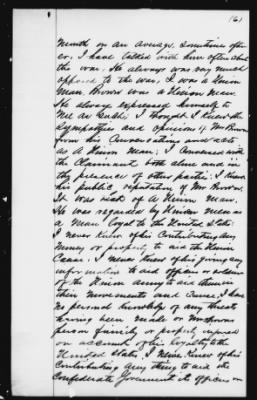 (6)
month on an average, sometimes often
er, I have talked with him often about
the war. He always was very much
opposed to the war, I was a Union
Man. Brown was a Union Man.
He always expressed himself to
me as such, I thought I knew the
Sympathies and opinions of Mr Brown
from his Conversations and acts
as A Union Man, I conversed with
the Claimant both alone and in
the presence of other parties. I knew
his public reputation of Mr Brown.
It was that of A Union Man.
He was regarded by Union men as
a Man loyal to the United States
I never knew of his Contributing any
Money or property to aid the Union
Cause. I never knew of his giving any
information to aid officers or soldiers
of the Union army to aid them in
their movements and Cause. I have
no personal knowledge of any threats
having been made or Mr Browns
person family or property injured
on account of his loyalty to the
United States, I never knew of his
Contributing any thing to aid the
Confederate Government its officers or